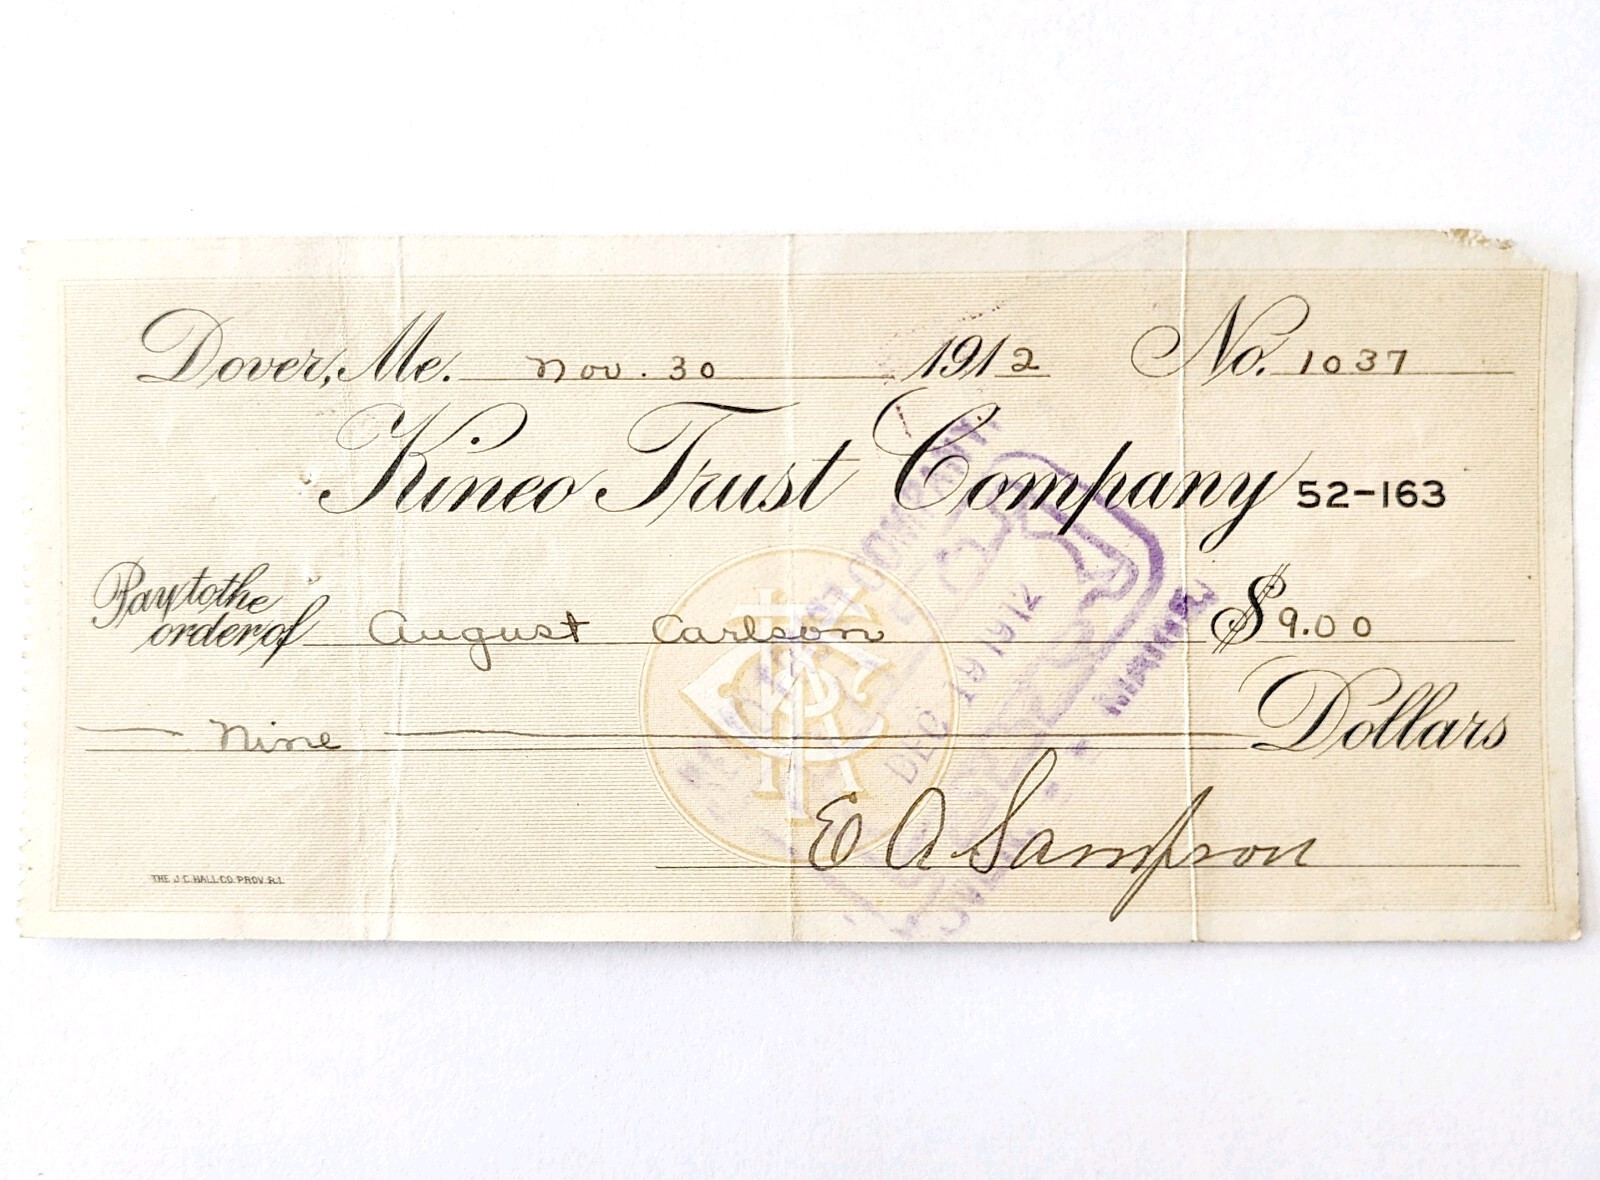 Dover, Me. Nov. 30 1912 No. 1037
Kineo Trust Company 52-163
Pay to the
order of August Carlson $9.00
Nine Dollars
E A Sampson
THE J.C. HALL CO. PROV. R.I.
TRUST COMPANY
DEC 19 1912
MAINE